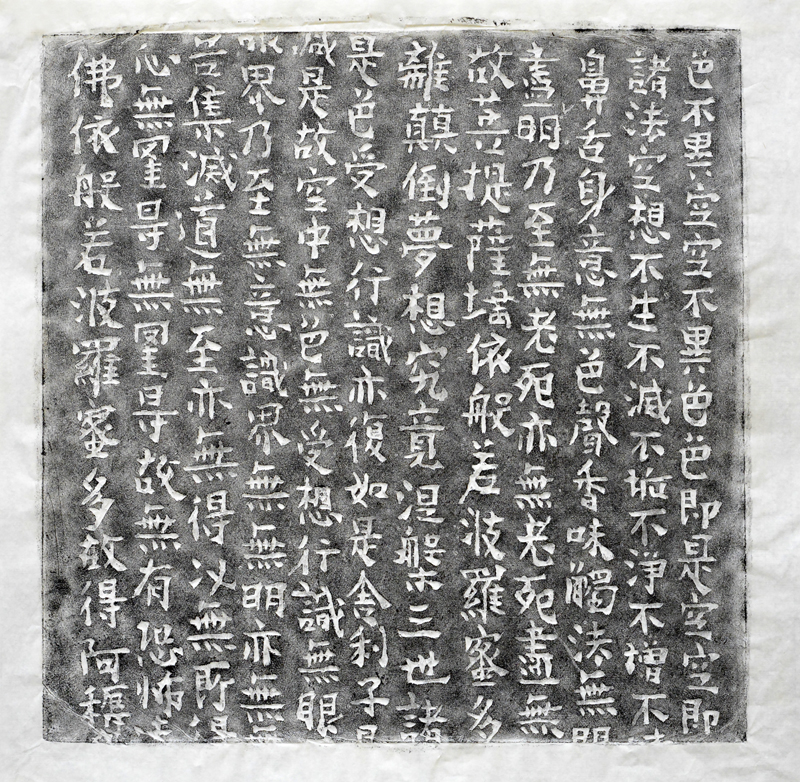 色不異空空不異色色即是空空即
諸法空想不生不滅不垢不淨不增不
鼻舌身意無色聲香味觸法無
盡明乃至無老死亦無老死盡無
故菩提薩埵依般若波羅蜜多
離顛倒夢想究竟涅槃三世諸
是色受想行識亦復如是舍利子是
減是故空中無色無受想行識無眼
眼界乃至無意識界無無明亦無無
苦集滅道無至亦無得以無所得
心無罣㝵無罣㝵故無有恐怖
佛依般若波羅蜜多故得阿耨